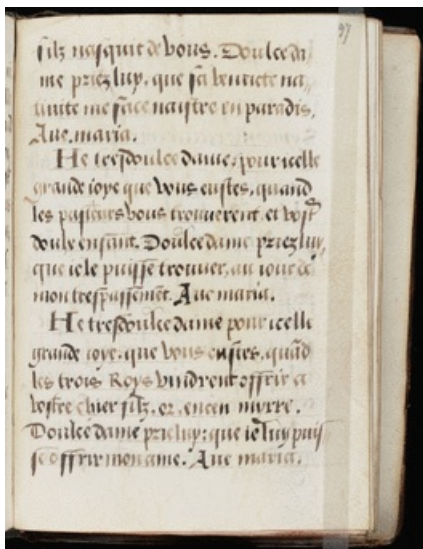 97
filz nasquit de vous. Doulce da
me priez luy, que sa benoiste na
tivite me face naistre en paradis.
Ave. maria.
He tresdoulce dame, pour icelle
grande ioye que vous eustes, quand
les pasteurs vous trouuerent, et vostr̃
doulx enfant. Doulce dame priez luy,
que ie le puisse trouuer, au iour de
mon trespassement. Aue maria.
He tresdoulce dame pour icelle
grande ioye, que vous eustes, quãd
les trois Roys vindrent offrir a
vostre chier filz, or, encen myrre.
Doulce dame prie luy: que ie luy puis
se offrir mon ame. Aue maria.